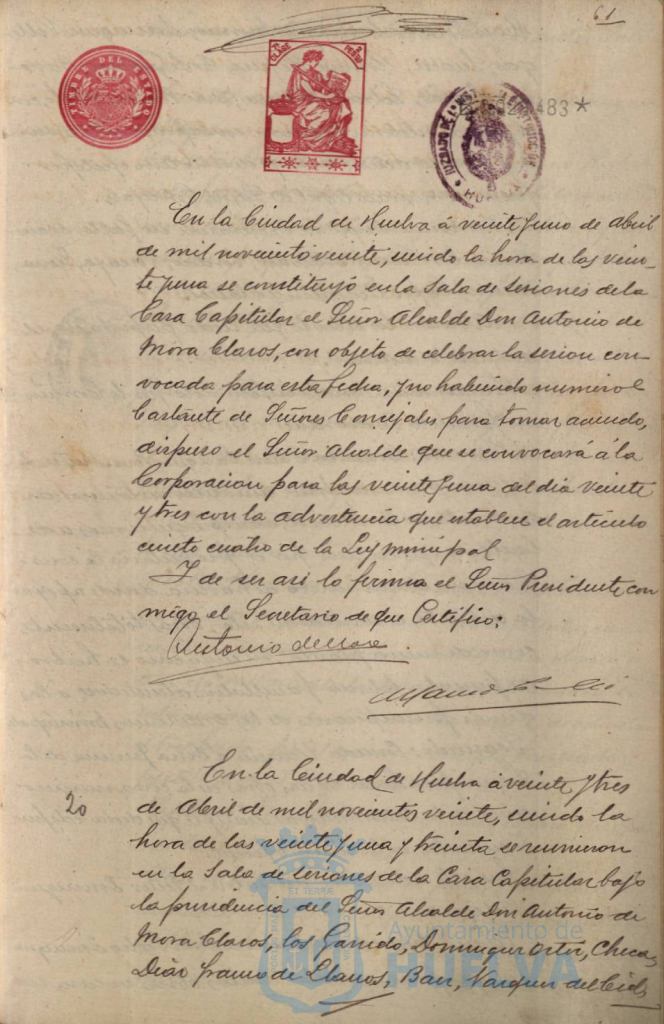 61
TIMBRE DEL ESTADO
7ª CLASE
483*
JUZGADO DE 1ª INSTANCIA E INSTRUCCION
HUELVA
En la Ciudad de Huelva á veinte y uno de Abril
de mil novecientos veinte, siendo la hora de las vein-
te y una se constituyó en la Sala de Sesiones de la
Casa Capitular el Señor Alcalde Don Antonio de
Mora Claros, con objeto de celebrar la sesion con
vocada para esta fecha, y no habiendo numero
bastante de Señores Concejales para tomar acuerdo,
dispuso el Señor Alcalde que se convocará á la
Corporacion para las veinte y una del dia veinte
y tres con la advertencia que establece el articulo
ciento cuatro de la Ley municipal
Y de ser asi lo firma el Señor Presidente con
migo el Secretario de que Certifico:
Antonio de Mora
20
En la Ciudad de Huelva á veinte y tres
de Abril de mil novecientos veinte, siendo la
hora de las veinte y una y treinta se reunieron
en la Sala de Sesiones de la Casa Capitular bajo
la presidencia del Señor Alcalde Don Antonio de
Mora Claros, los Garrido, Dominguez Ortiz, Checa,
Diaz Franco de Llanos, Barr, Vazquez del Cid,
Ayuntamiento de
HUELVA